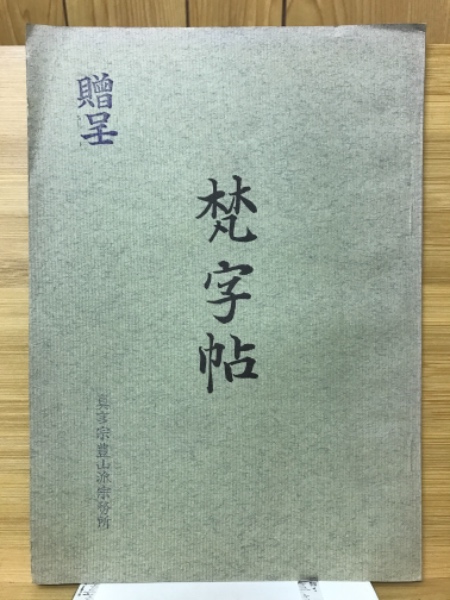 贈呈
梵字帖
真言宗豊山派宗務所